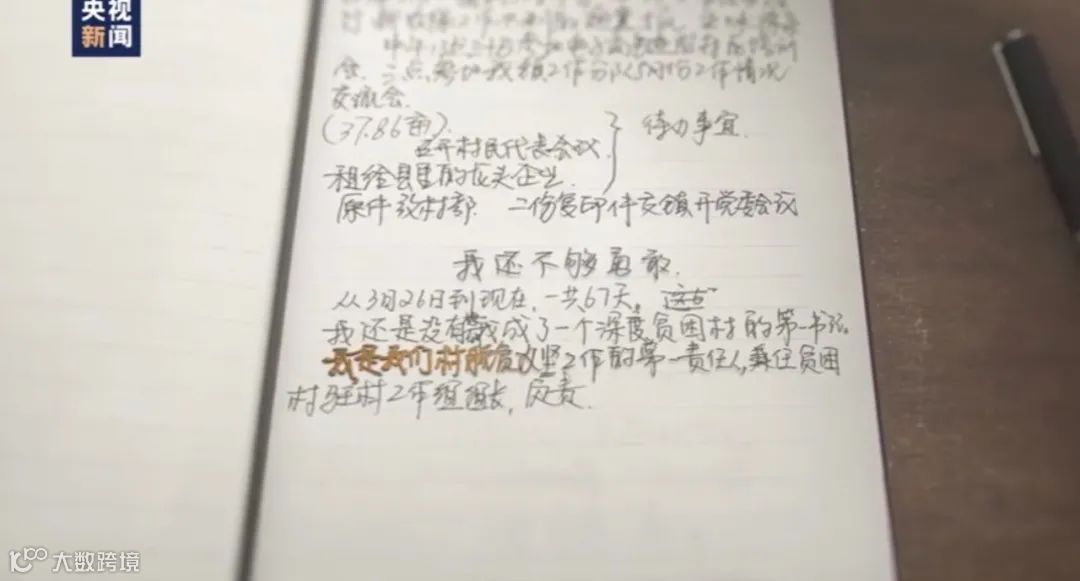 央视
新闻
会、三点参加我镇工作分队5月份工作情况
交流会.
(37.86亩).
召开村民代表会议.
租给县里的龙头企业.
待办事宜.
原件放村部. 二份复印件交镇开党委会议
我还不够勇敢.
从3月26日到现在, 一共67天,
我还是没有 我成了一个深度贫困村的第一书记.
我是我们村脱贫攻坚工作的第一责任人, 兼任贫困
村驻村工作组组长, 负责.
大数跨境